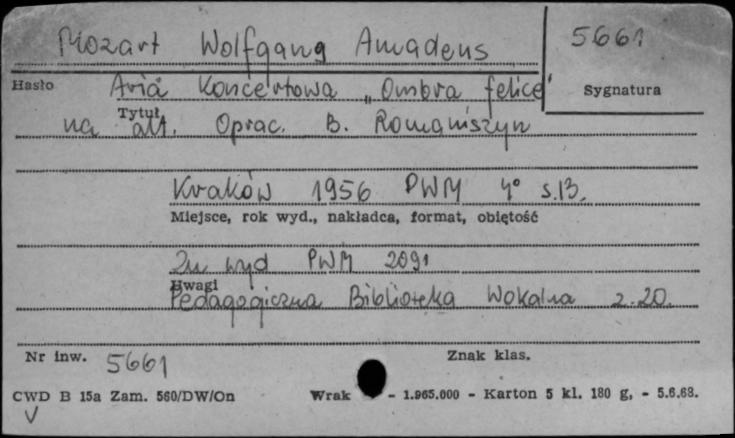 Mozart Wolfgang Amadeus 5661
Hasło Aria koncertowa „Ombra felice" Sygnatura
Tytuł
na alt. Oprac. B. Romaniszyn
Kraków 1956 PWM 4° s.13.
Miejsce, rok wyd., nakładca, format, objętość
Zn wyd PWM 2091
Uwagi
Pedagogiczna Biblioteka Wokalna z. 20.
Nr inw. 5661 Znak klas.
CWD B 15a Zam. 560/DW/On Wrak - 1.965.000 - Karton 5 kl. 180 g, - 5.6.68.
V